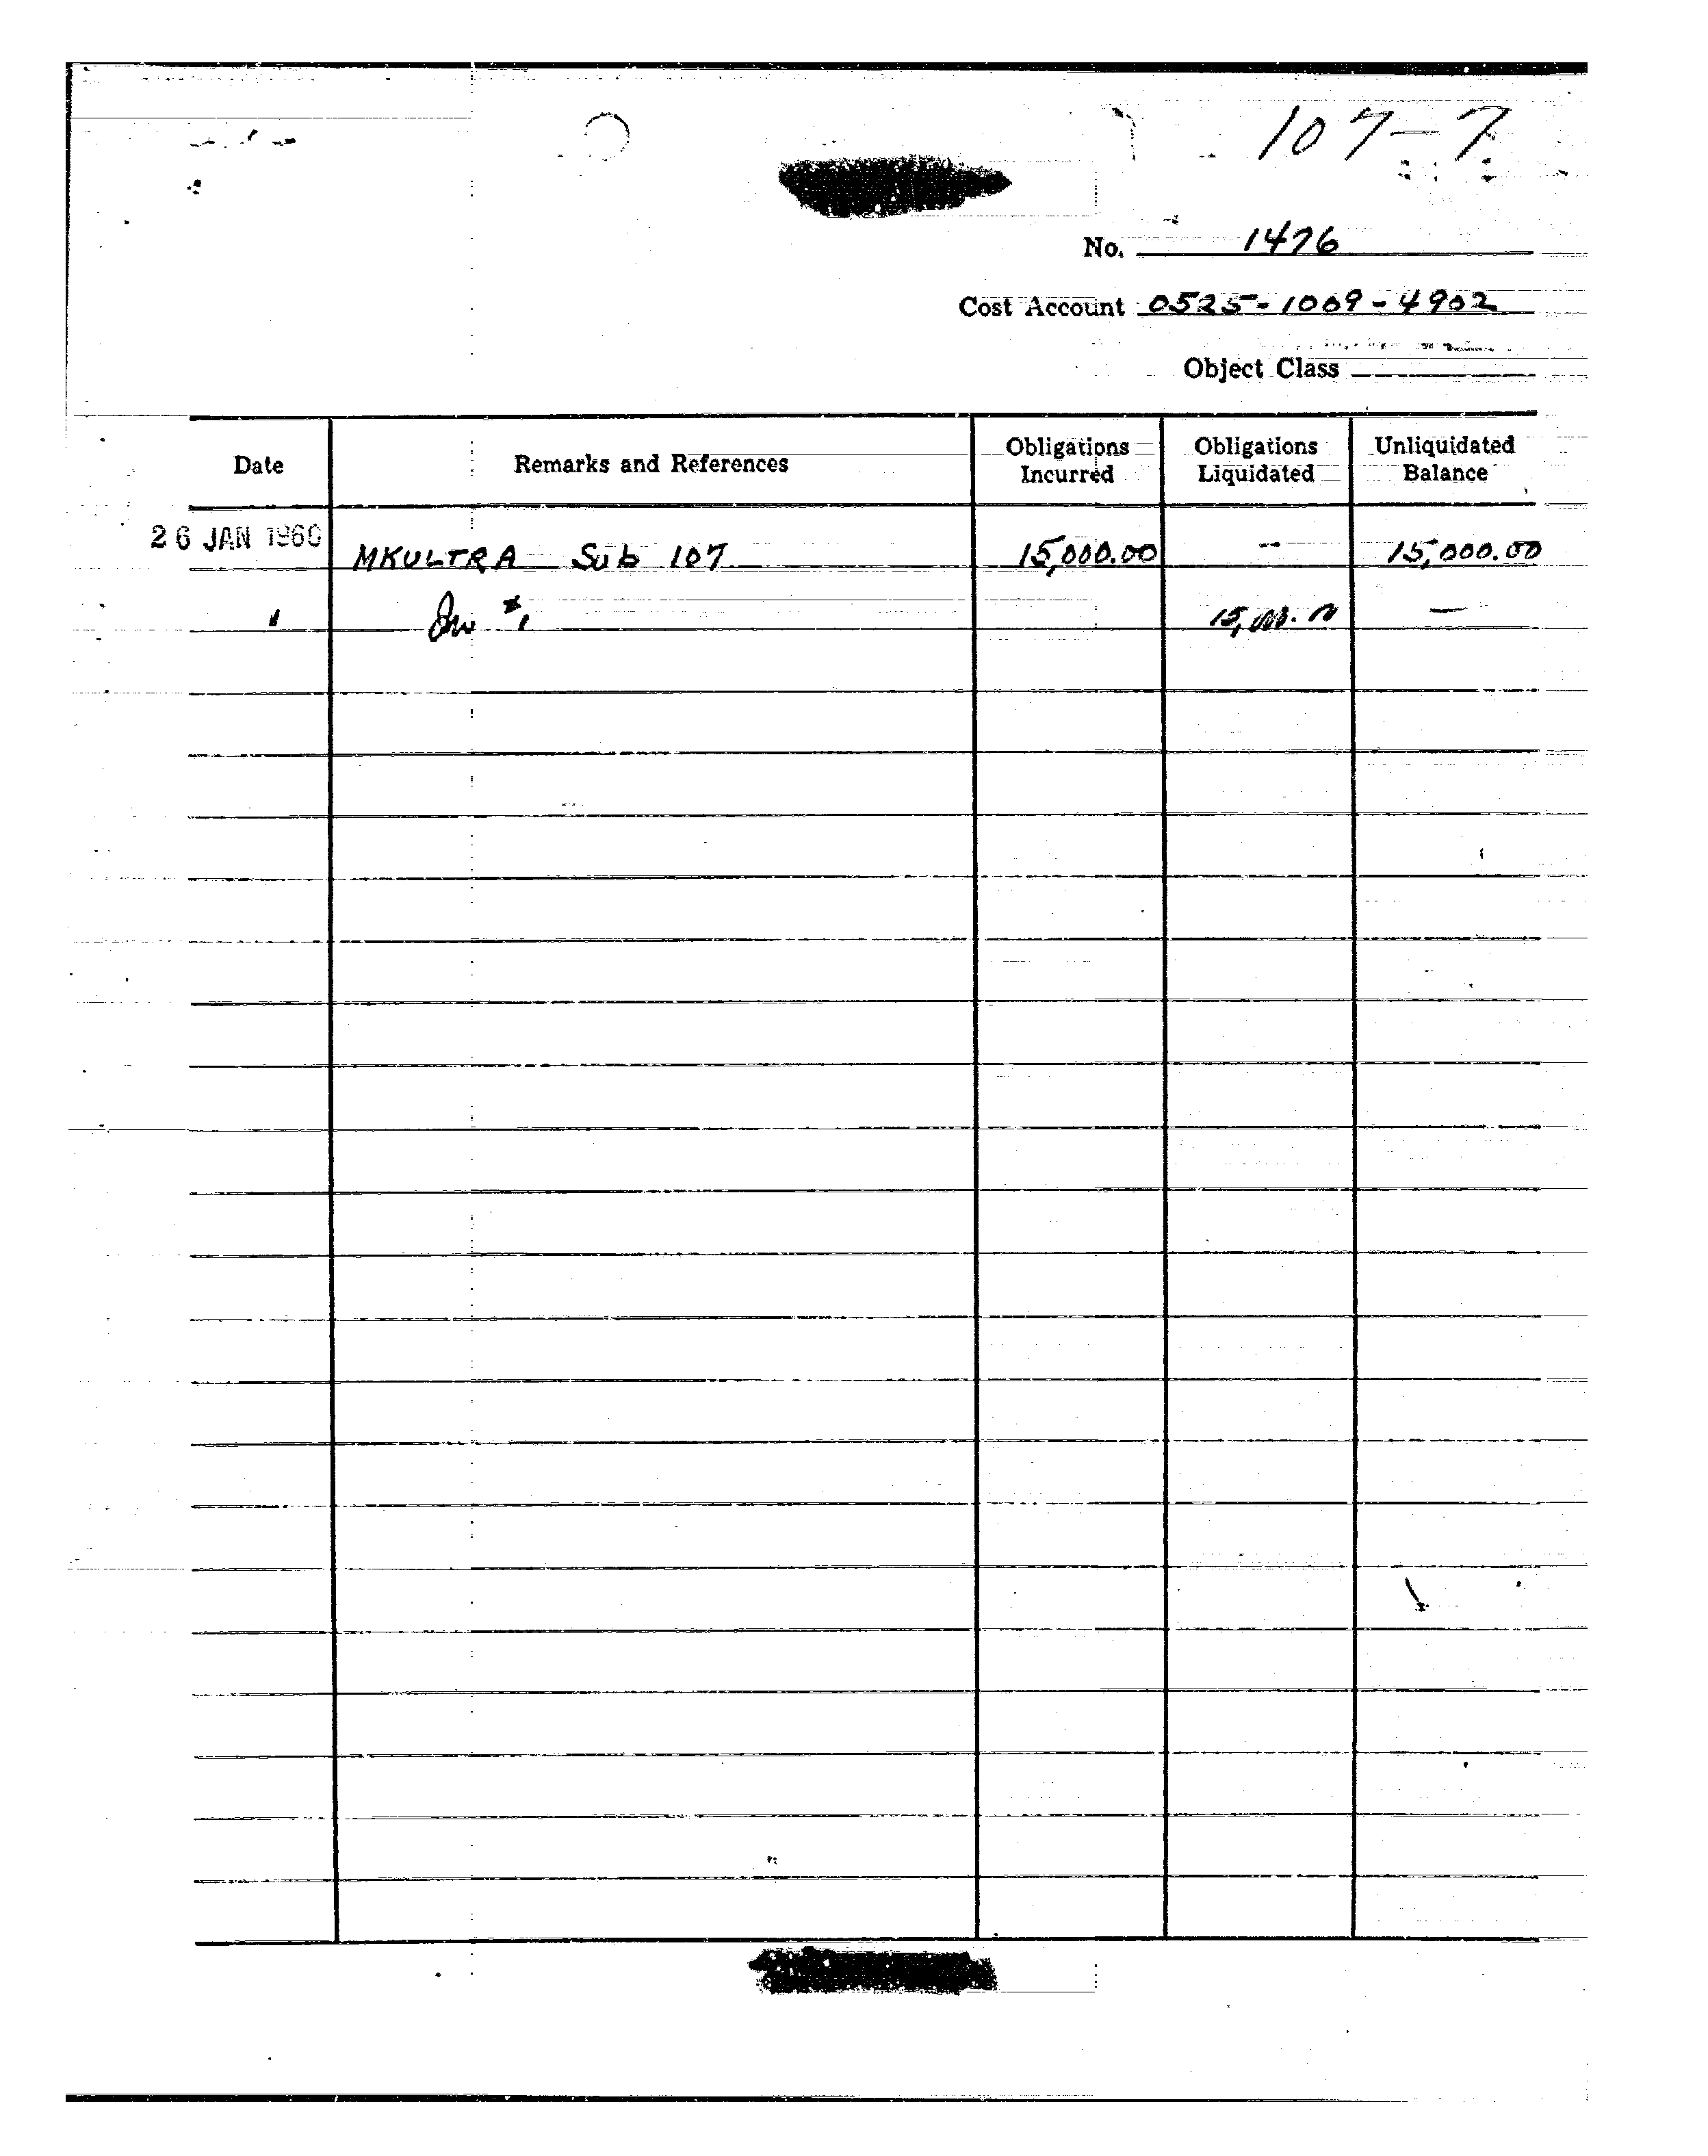 107-7
No. 1476
Cost Account 0525-1009-4902
Object Class
Date Remarks and References Obligations Incurred Obligations Liquidated Unliquidated Balance
26 JAN 1960 MKULTRA Sub 107 15,000.00 — 15,000.00
" Inv #1 15,000.00 —